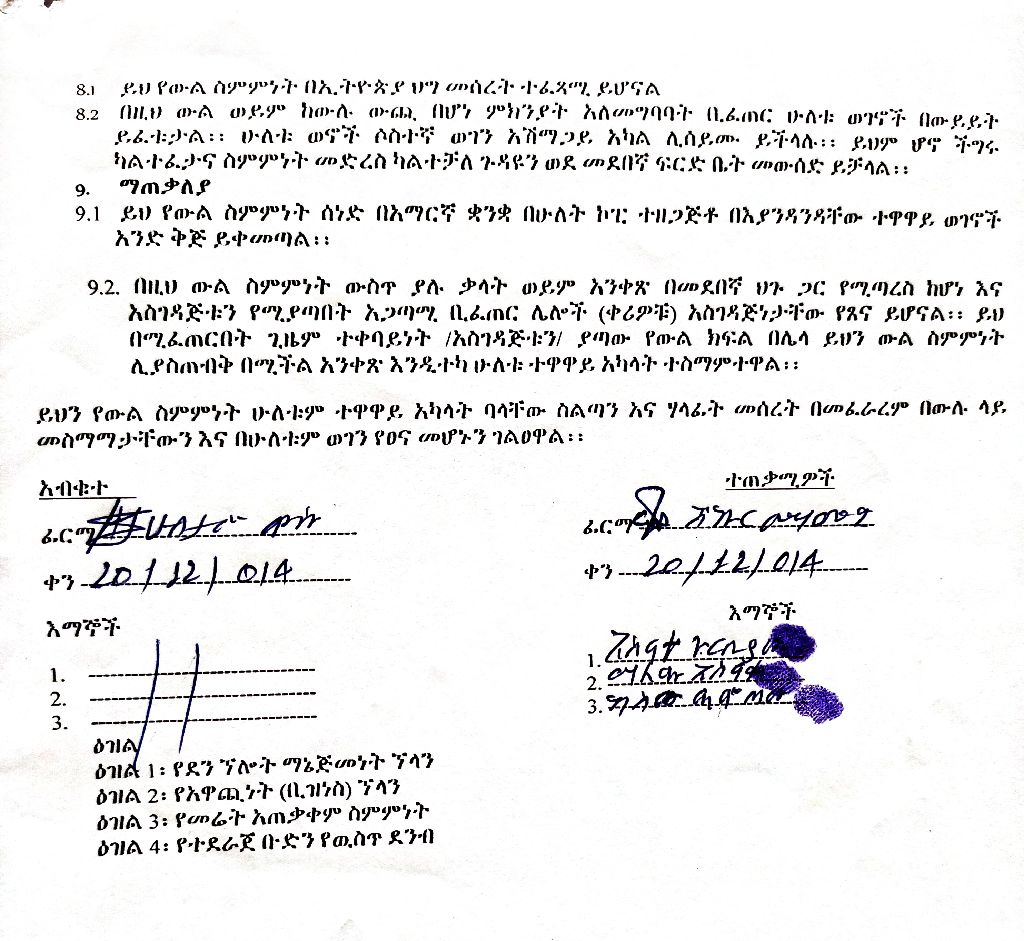 8.1 ይህ የውል ስምምነት በኢትዮጵያ ህግ መሰረት ተፈጻሚ ይሆናል
8.2 በዚህ ውል ወይም ከውሉ ውጪ በሆነ ምክንያት አለመግባባት ቢፈጠር ሁለቱ ወገኖች በውይይት
ይፈቱታል፡፡ ሁለቱ ወኖች ሶስተኛ ወገን አሸማጋይ አካል ሊሰይሙ ይችላሉ፡፡ ይህም ሆኖ ችግሩ
ካልተፈታና ስምምነት መድረስ ካልተቻለ ጉዳዩን ወደ መደበኛ ፍርድ ቤት መውሰድ ይቻላል፡፡
9. ማጠቃለያ
9.1 ይህ የውል ስምምነት ሰነድ በአማርኛ ቋንቋ በሁለት ኮፒ ተዘጋጅቶ በእያንዳንዳቸው ተዋዋይ ወገኖች
አንድ ቅጅ ይቀመጣል፡፡
9.2. በዚህ ውል ስምምነት ውስጥ ያሉ ቃላት ወይም አንቀጽ በመደበኛ ህጉ ጋር የሚጣረስ ከሆነ እና
አስገዳጅቱን የሚያጣበት አጋጣሚ ቢፈጠር ሌሎች (ቀሪዎቹ) አስገዳጅነታቸው የጸና ይሆናል፡፡ ይህ
በሚፈጠርበት ጊዜም ተቀባይነት /አስገዳጅቱን/ ያጣው የውል ክፍል በሌላ ይህን ውል ስምምነት
ሊያስጠብቅ በሚችል አንቀጽ እንዲተካ ሁለቱ ተዋዋይ አካላት ተስማምተዋል፡፡
ይህን የውል ስምምነት ሁለቱም ተዋዋይ አካላት ባላቸው ስልጣን እና ሃላፊት መሰረት በመፈራረም በውሉ ላይ
መስማማታቸውን እና በሁለቱም ወገን የፀና መሆኑን ገልፀዋል፡፡
አብቁተ
ተጠቃሚዎች
ፊርማ
ፊርማ
ቀን 20/12/014
ቀን 20/12/014
እማኞች
እማኞች
1.
2.
3.
1.
2.
3.
ዕዝል
ዕዝል 1፡ የደን ኘሎት ማኔጅመነት ኘላን
ዕዝል 2፡ የአዋጪነት (ቢዝነስ) ኘላን
ዕዝል 3፡ የመሬት አጠቃቀም ስምምነት
ዕዝል 4፡ የተደራጀ ቡድን የዉስጥ ደንብ